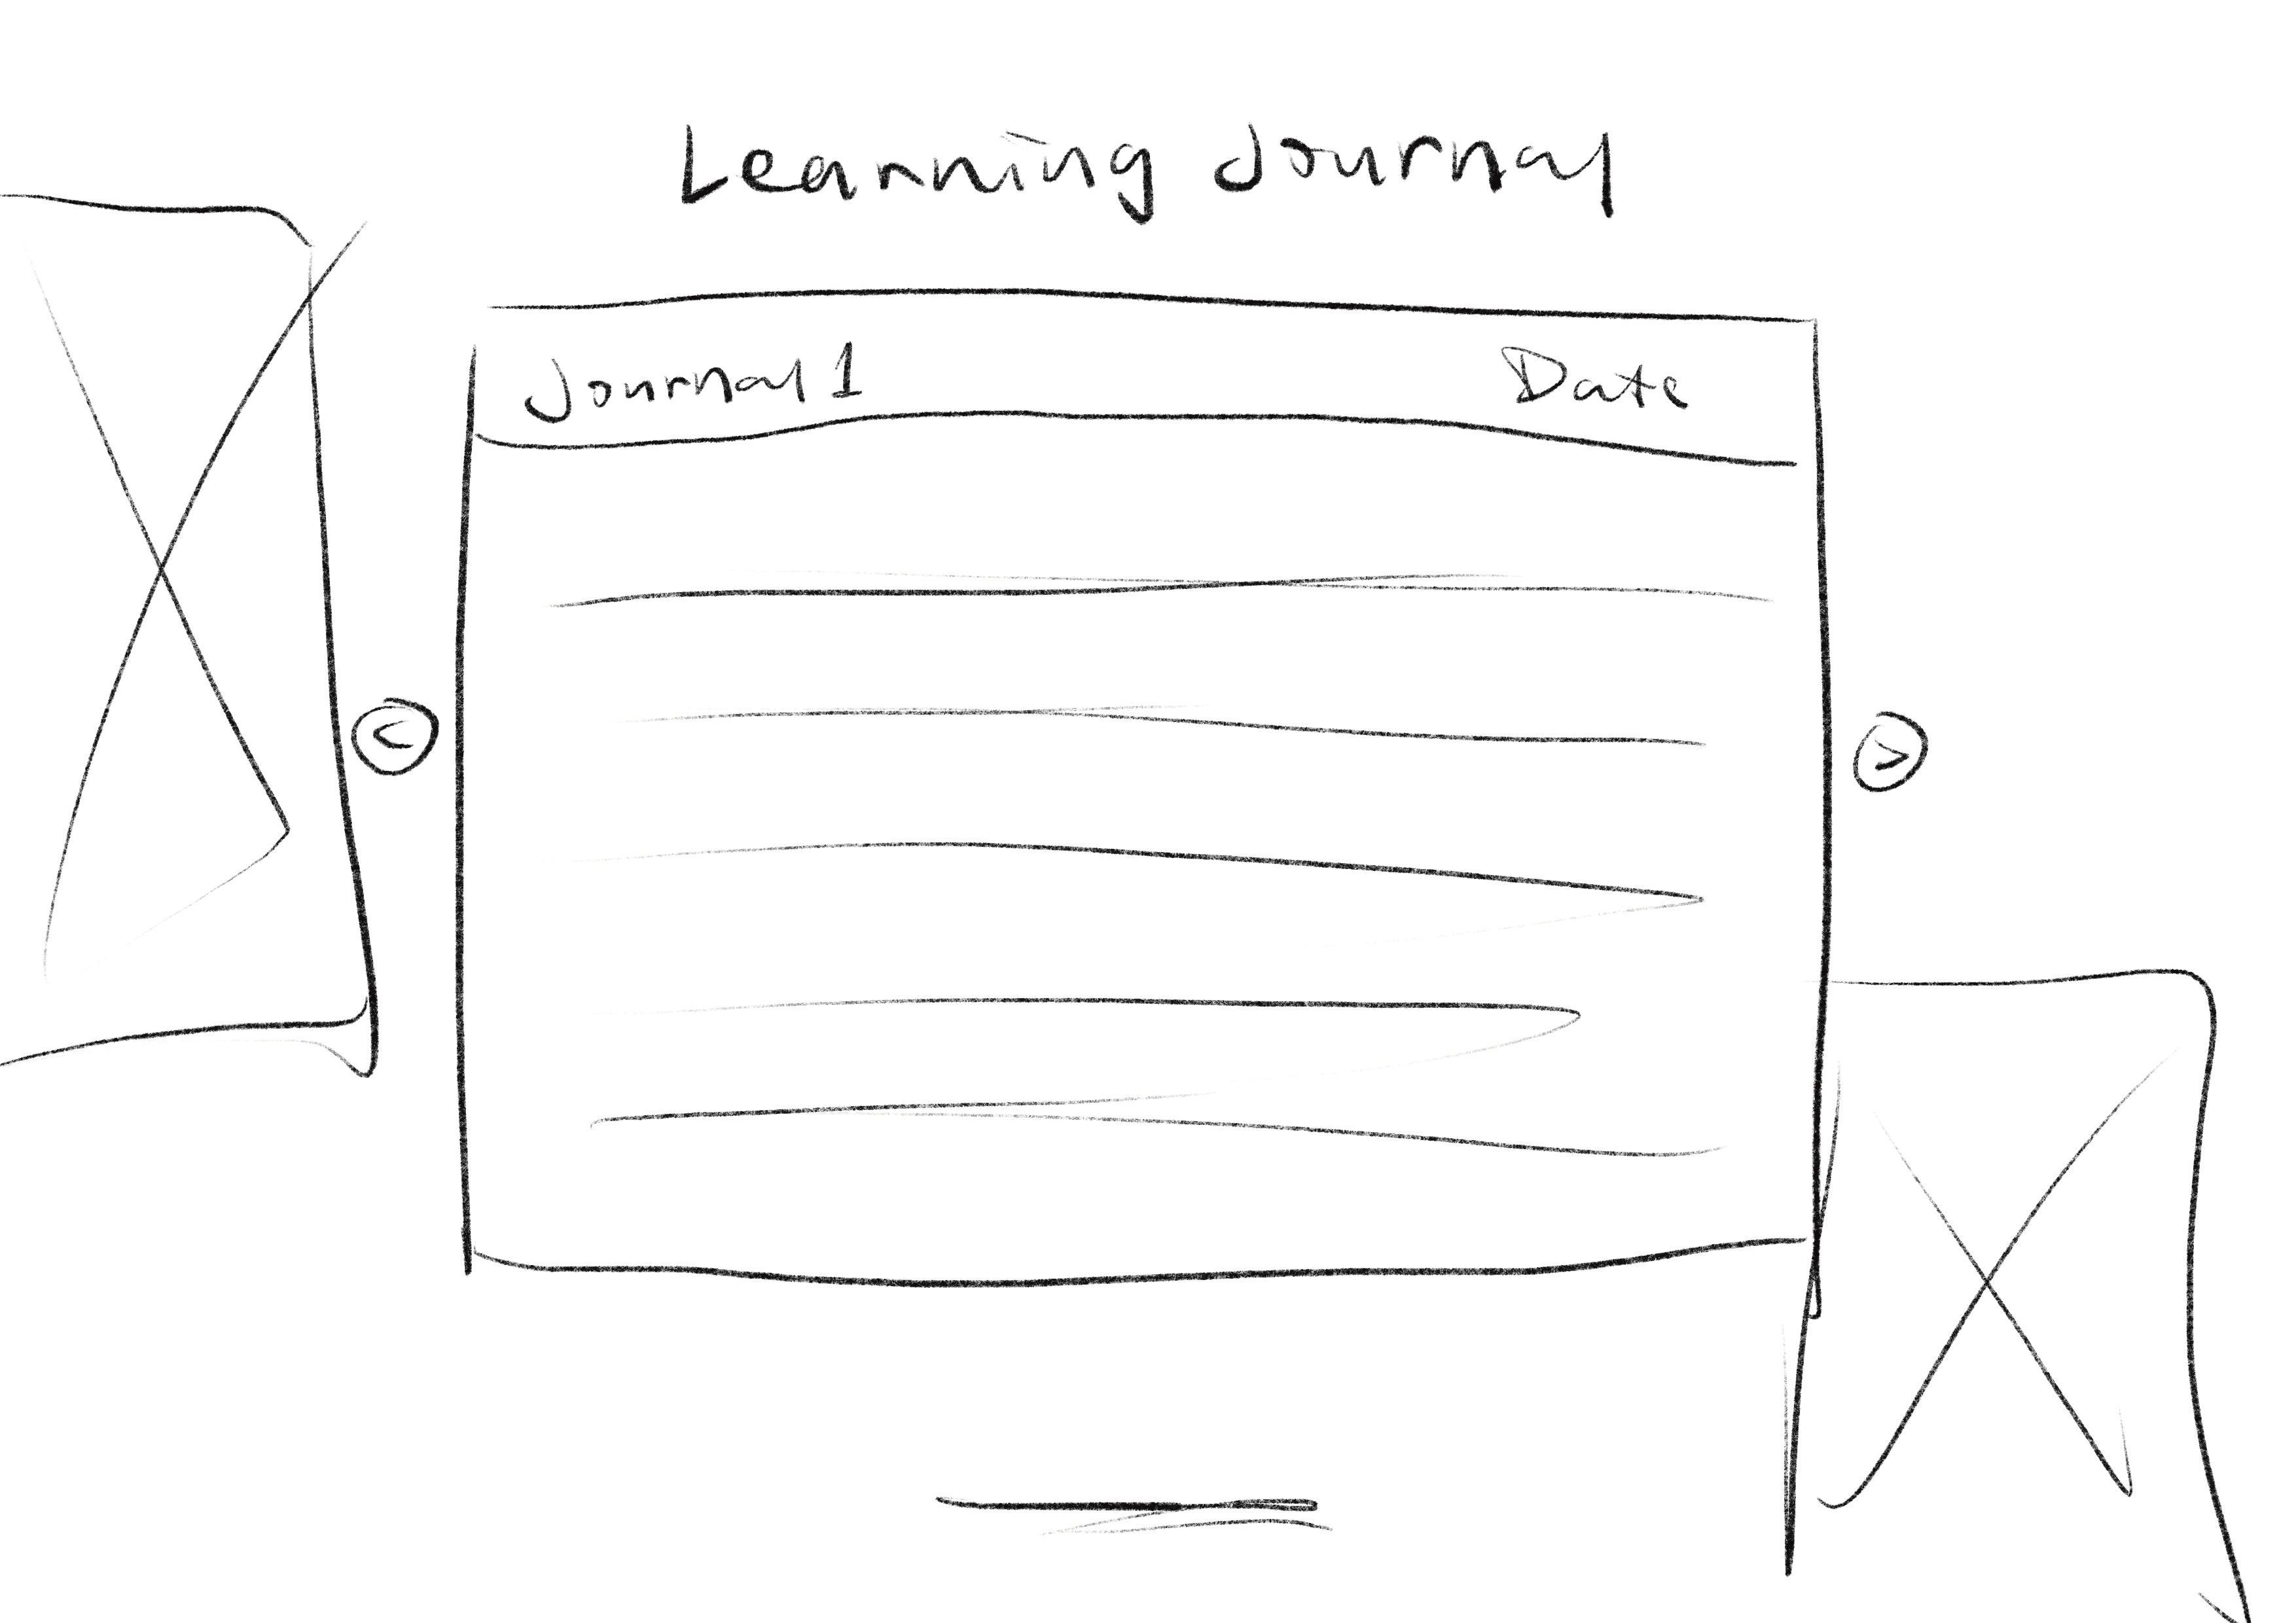 Learning Journal
Journal 1 Date
<
>